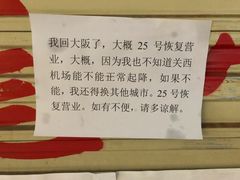 我回大阪了，大概 25 号恢复营
业，大概，因为我也不知道关西
机场能不能正常起降，如果不
能，我还得换其他城市。25 号
恢复营业。如有不便，请多谅解。